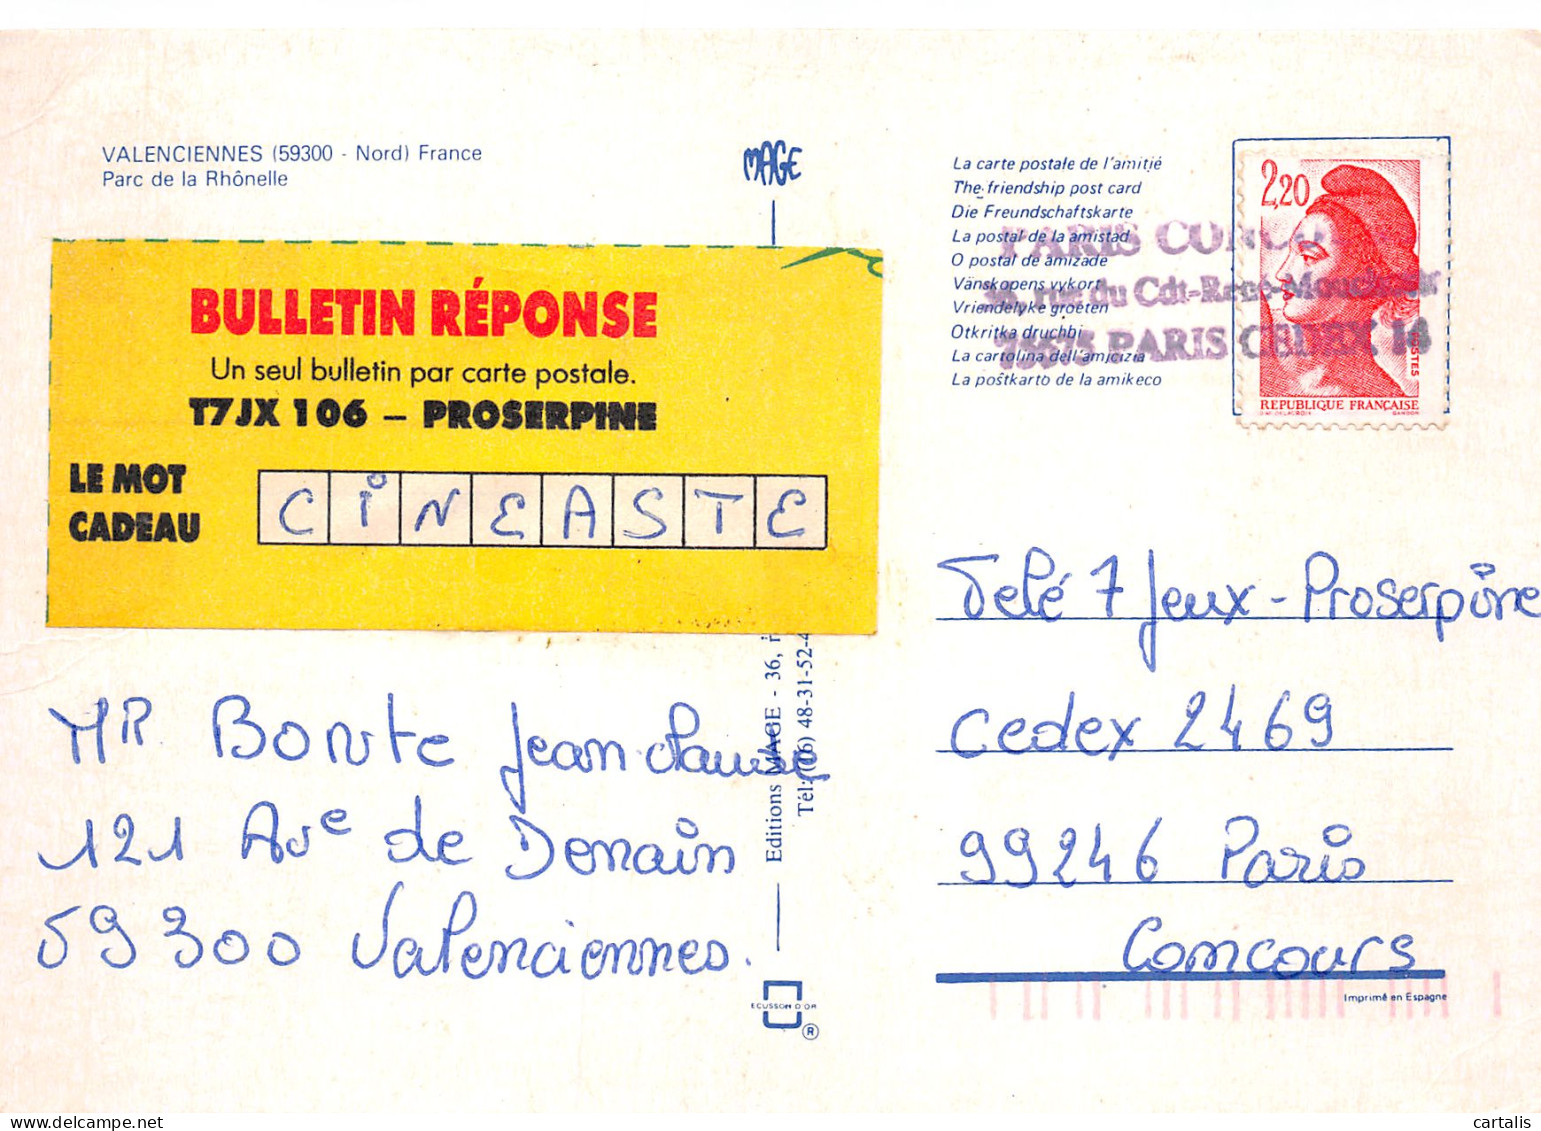 VALENCIENNES (59300 - Nord) France
Parc de la Rhônelle
MAGE
BULLETIN RÉPONSE
Un seul bulletin par carte postale.
T7JX 106 – PROSERPINE
LE MOT
CADEAU
CiNEASTE
MR Bonte Jean-claude
121 Ave de Denain
59300 Valenciennes.
Editions MAGE - 36,
Tél: (16) 48-31-52-4
ECUSSON D'OR
®
La carte postale de l'amitié
The friendship post card
Die Freundschaftskarte
La postal de la amistad
O postal de amizade
Vänskopens vykort
Vriendelyke groeten
Otkritka druchbi
La cartolina dell'amicizia
La postkarto de la amikeco
PARIS
rue du Cdt-René-Mouchotte
PARIS CEDEX 14
2,20
POSTES
REPUBLIQUE FRANÇAISE
D'AP. DELACROIX GANDON
Telé 7 Jeux - Proserpine
Cedex 2469
99246 Paris
Concours
Imprimé en Espagne
cartalis